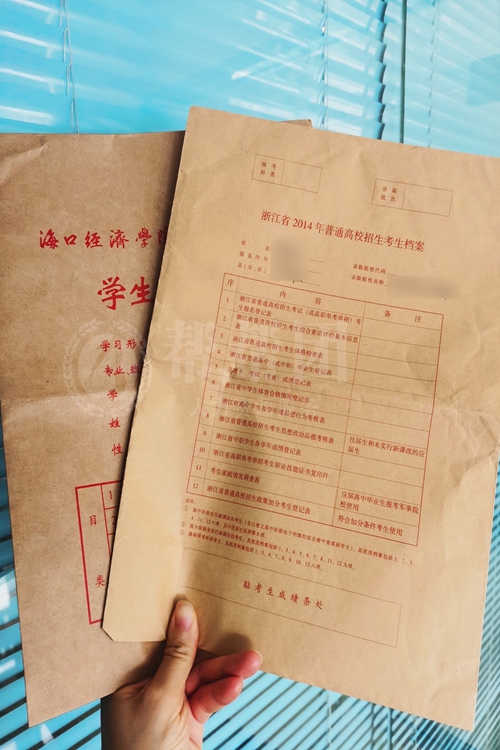 海口经濟學院
学生
学习形
专业
学
姓
性
目
类
1
报考
科类
录取
批次
浙江省2014年普通高校招生考生档案
姓名
报名序号
县(市、区)
录取院校代码:
录取院校名称:
序 内容 备注
1 浙江省普通高校招生考试(或高职单考单招)考生报名登记表
2 浙江省普通高校招生考生综合素质评价基本信息表
3 浙江省普通高校招生考生体格检查表
4 浙江省普通高中(或中职)毕业生登记表
5 考试(考查)成绩登记表
6 浙江省高中学生体育合格情况登记表
7 浙江省高中学生各学年度品进行为考核表
8 浙江省普通高校招生考生思想政治品德考核表 往届生和未实行新课改的应届生
9 浙江省中职学生各学年成绩登记表
10 浙江省高职单考单招考生职业技能证书复印件
11 考生家庭情况调查表 应届高中毕业生报考军事院校使用
12 浙江省普通高校招生政策加分考生登记表 符合加分条件考生使用
说明:
贴考生成绩条处